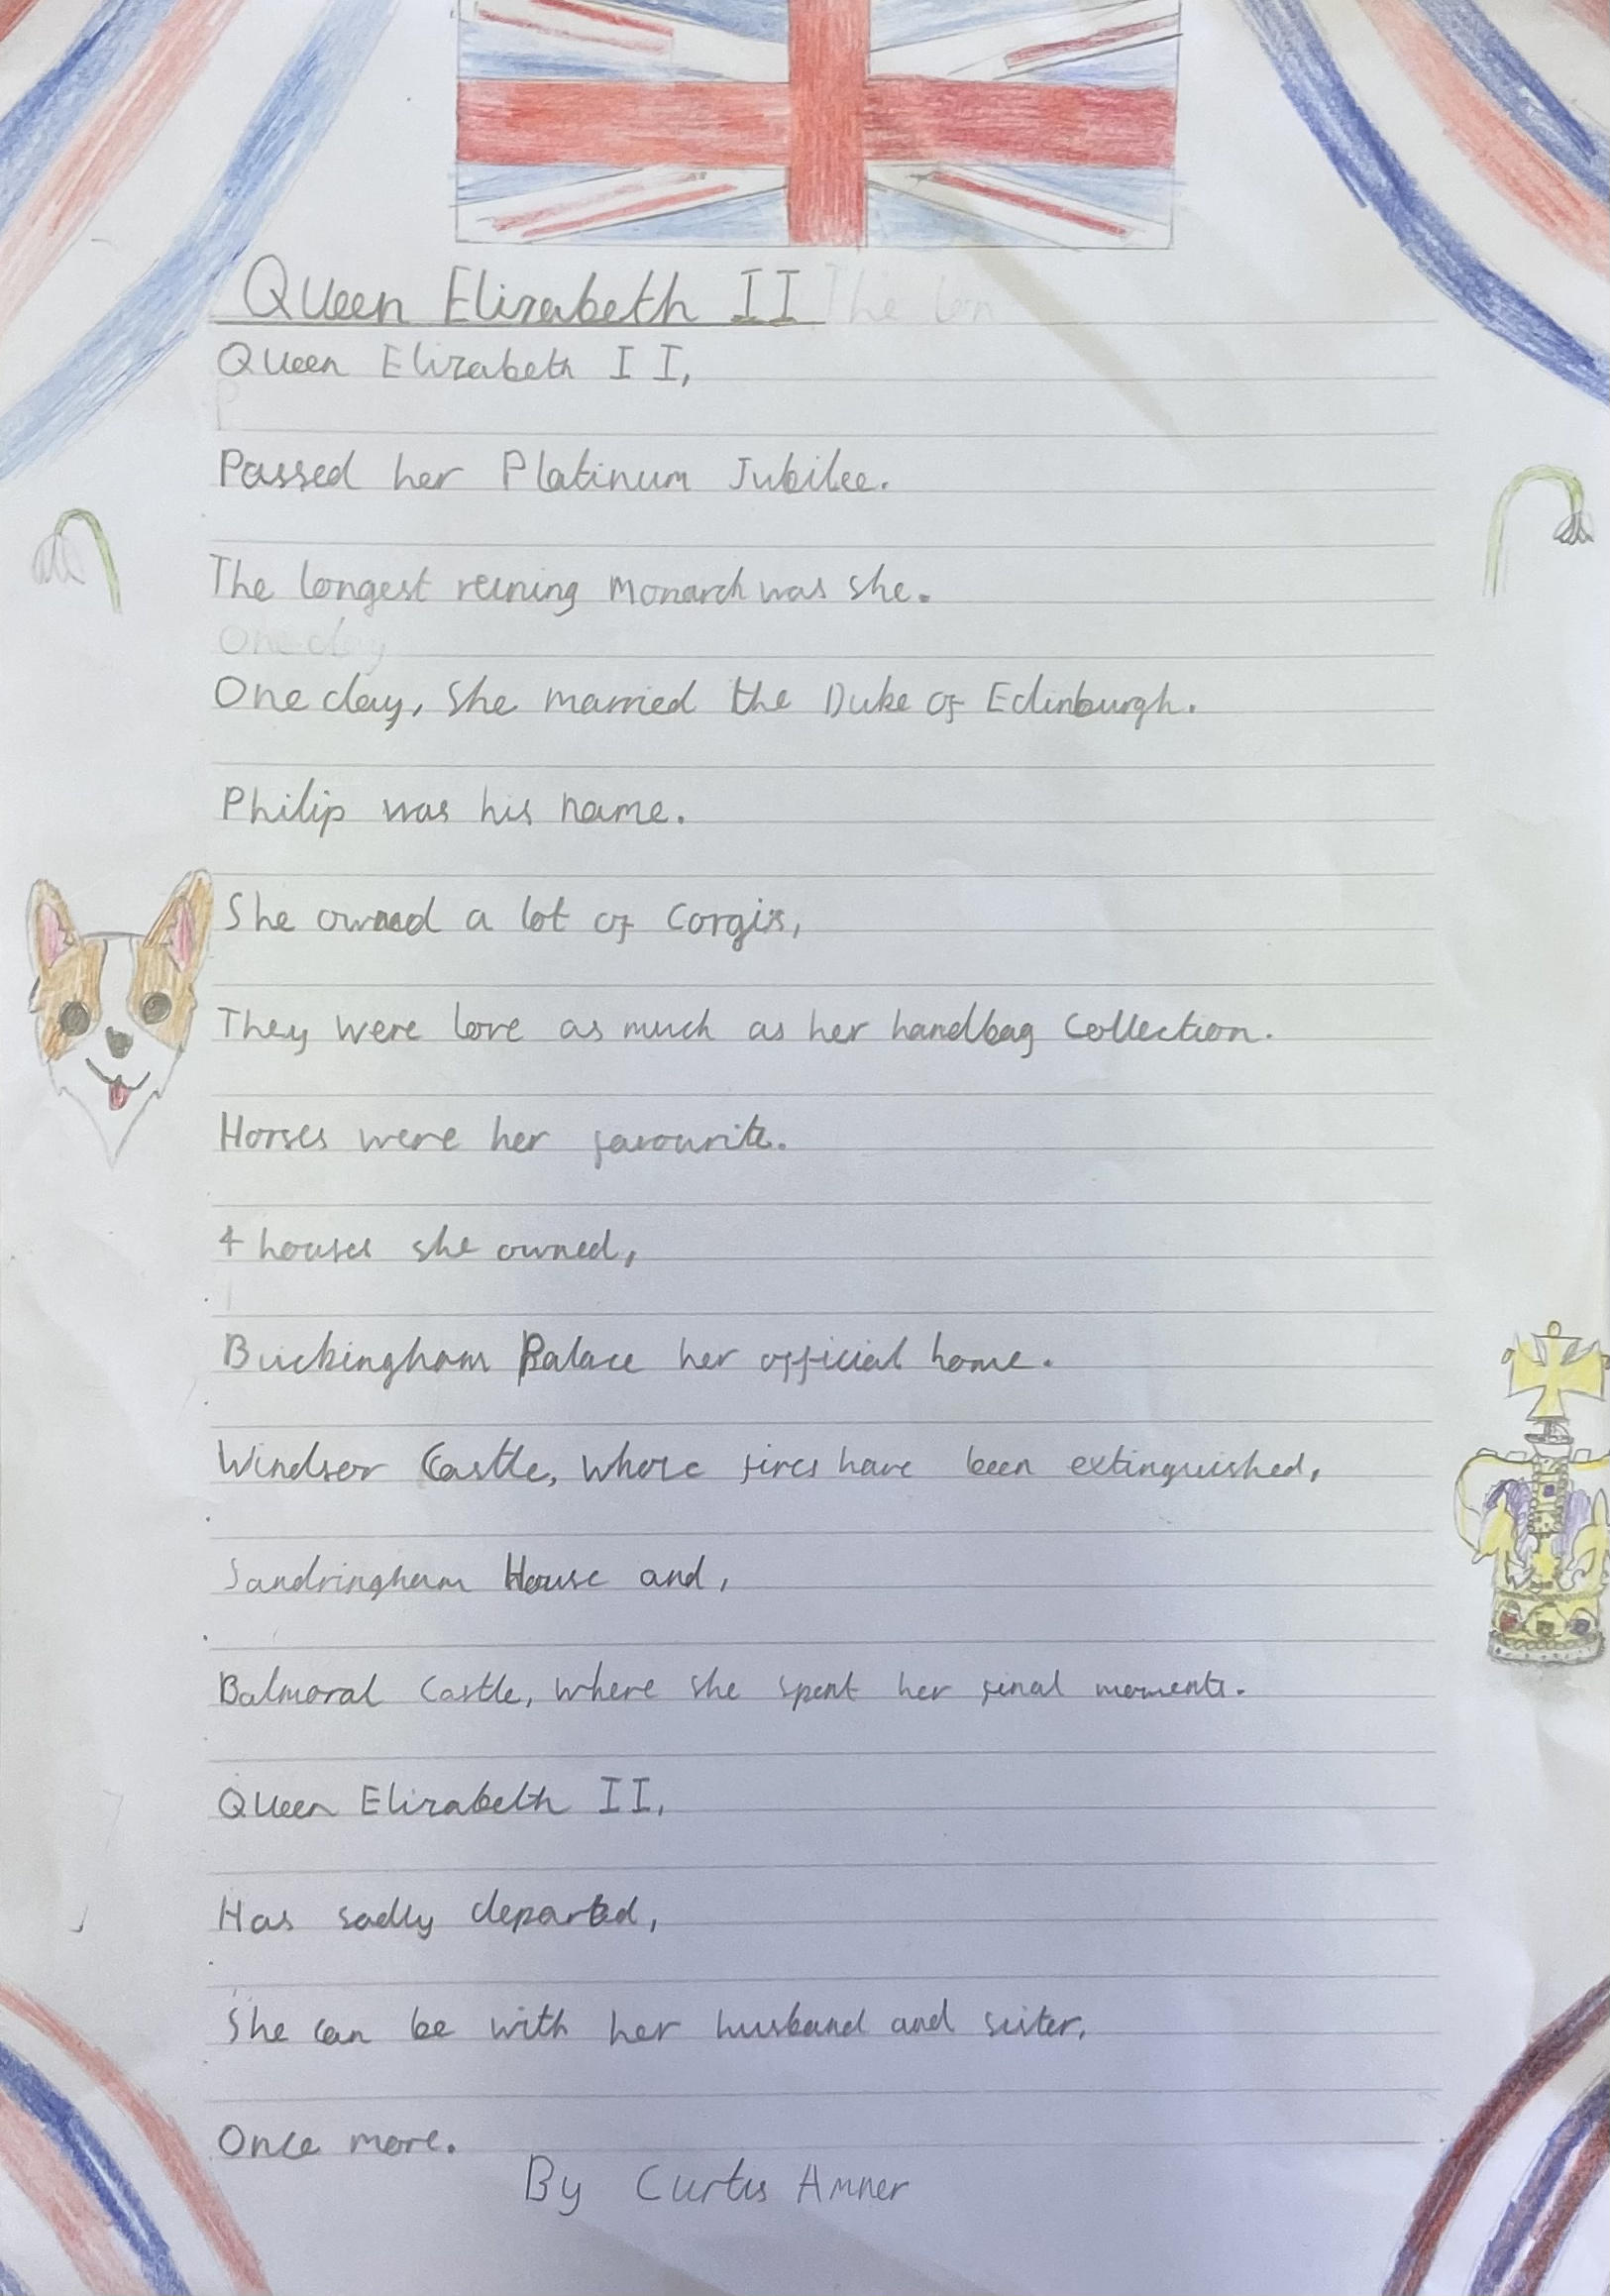 Queen Elizabeth II
Queen Elizabeth II,
Passed her Platinum Jubilee.
The longest reining Monarch was she.
One day
One day, she married the Duke of Edinburgh.
Philip was his name.
She owned a lot of Corgis,
They were love as much as her handbag Collection.
Horses were her favourite.
4 houses she owned,
Buckingham Palace her official home.
Windsor Castle, whose fires have been extinguished,
Sandringham House and,
Balmoral Castle, where she spent her final moments.
Queen Elizabeth II,
Has sadly departed,
She can be with her husband and sister,
Once more.
By Curtis Amner